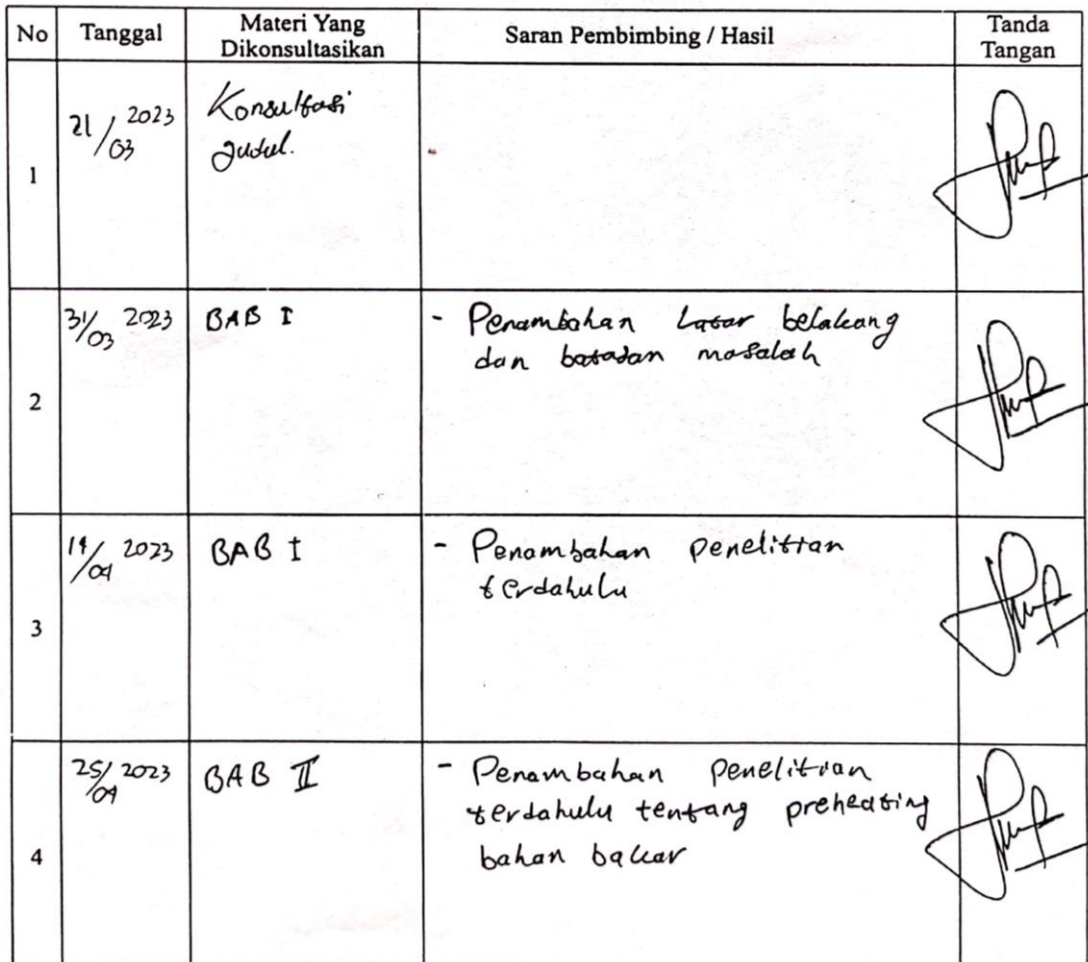 No Tanggal Materi Yang Dikonsultasikan Saran Pembimbing / Hasil Tanda Tangan
1 21/03 2023 Konsultasi
Judul.
2 31/03 2023 BAB I - Penambahan Latar belakang
dan batasan masalah
3 2023 BAB I - Penambahan penelitian
terdahulu
4 25/04 2023 BAB II - Penambahan penelitian
terdahulu tentang preheating
bahan bakar